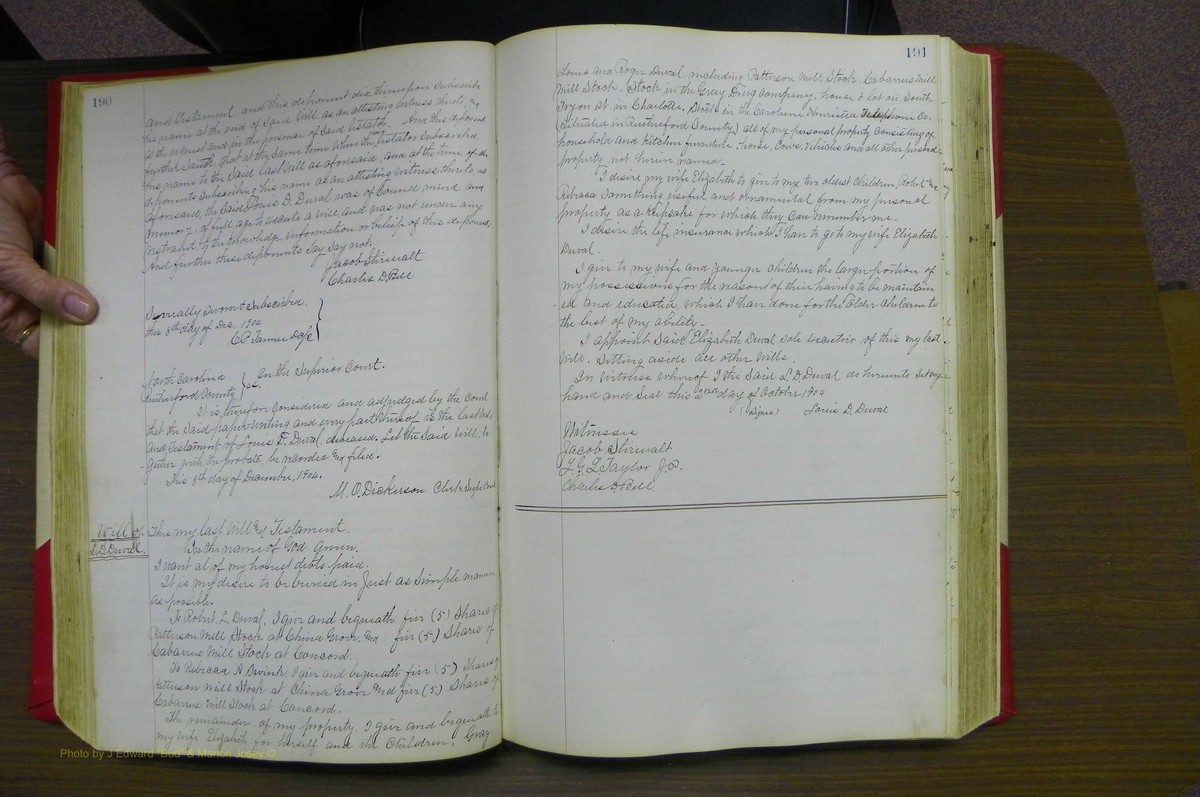 190
and Testament and this deponent did thereupon Subscribe
his name at the end of Said Will, as an attesting witness thereto, &
at the request and in the presence of Said testator. And this deponent
further Saith, that at the Same time when the Said testator Subscribed
his name to the Said last Will as aforesaid, and at the time of the
deponents Subscribing his name as an attesting witness thereto, as
aforesaid, the Said Louis D. Duval was of Sound mind and
memory, of full age to execute a will, and was not under any
restraint, to the knowledge, information or belief of this deponent,
And further these deponents Say Say not.
Jacob Stirewalt
Charles D. Bell
Severally Sworn & Subscribed
this 8th day of Dec, 1904
C.P. Tanner D.C.S.C.
North Carolina
Rutherford County } ss. In the Superior Court.
It is therefore Considered and adjudged by the Court
that the Said paper-writing and every part thereof is the last Will
and Testament of Louis D. Duval, deceased. Let the Said Will, to-
gether with the probate, be recorded and filed.
This 8th day of December, 1904.
M.O. Dickerson Clerk Supr Court
Will of
L.D. Duval.
This my last Will and Testament.
In the name of God Amen.
I want al of my honest debts paid.
It is my desire to be buried in Just as Simple manner
as possible.
To Robert L. Duval, I give and bequeath five (5) Shares of
Patterson Mill Stock at China Grove, and five (5) Shares of
Cabarrus Mill Stock at Concord.
To Rebecca A I give and bequeath five (5) Shares of
Patterson Mill Stock at China Grove and five (5) Shares of
Cabarrus Mill Stock at Concord.
The remainder of my property, I give and bequeath to
my wife Elizabeth for herself and the Children, Gray
191
Louis and Roger Duval, including Patterson Mill Stock, Cabarrus Mill
Mill Stock, Stock in the Gray Drug Company, house & lot on South
Tryon St. in Charlotte, Stock in the Carolina Henrietta Telephone Co.
(Situated in Rutherford County,) all of my personal property consisting of
household and kitchen furniture, Horse, Cows, Vehicles and all other personal
property not herein named.
I desire my wife Elizabeth to give to my two oldest Children, Robert &
Rebecca Something useful and ornamental from my personal
property, as a keepsake for which they can remember me.
I desire the life insurance which I have to go to my wife Elizabeth
Duval.
I give to my wife and younger children the larger portion of
my possessions for the reason of their having to be maintain-
ed and educated, which I have done for the older children to
the best of my ability.
I appoint Said Elizabeth Duval sole executrix of this my last
Will. Setting aside all other Wills.
In Witness whereof I the Said L.D. Duval do hereunto Set my
hand and Seal this 2nd day of October 1904
(Signed) Louis D. Duval
Witnesses
Jacob Stirewalt
L.G. Taylor J.P.
Charles D. Bell
Photo by J Edward "Bud" & Marion Josey ©